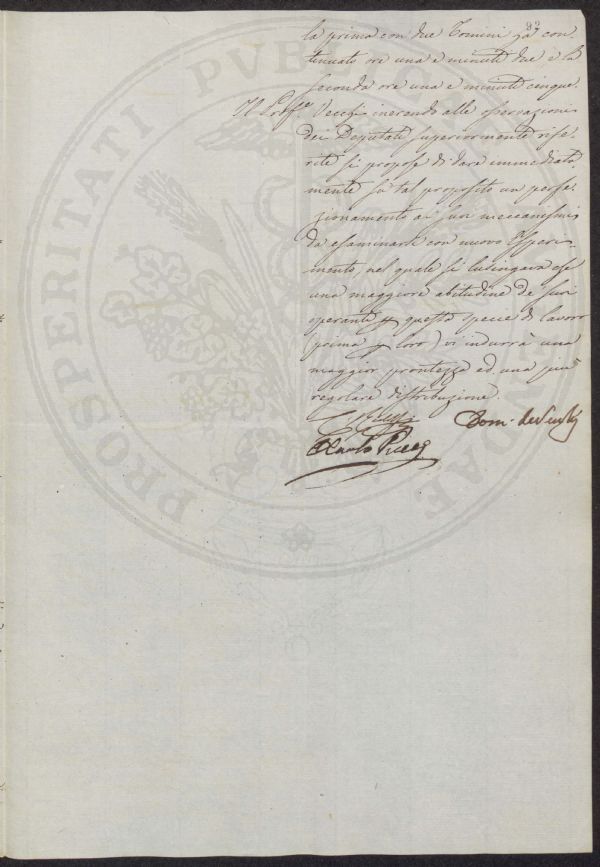 82
la prima con due Uomini ha con-
tinuato ore una e minuti due e la
seconda ore una e minuti cinque.
Il Prof.e Vecchi inerendo alle osservazioni
dei Deputati superiormente rife-
rite si propose di dare immediata-
mente su tal proposito un perfe-
zionamento ai suoi meccanismi
da esaminarsi con nuovo Esperi-
mento, nel quale si lusingava che
una maggiore abitudine de suoi
operanti questa specie di lavoro
(prima loro) vi indurrà una
maggior prontezza ed una più
regolare distribuzione.
Dom.
Carlo
PROSPERITATI PVBLICAE AVGENDAE